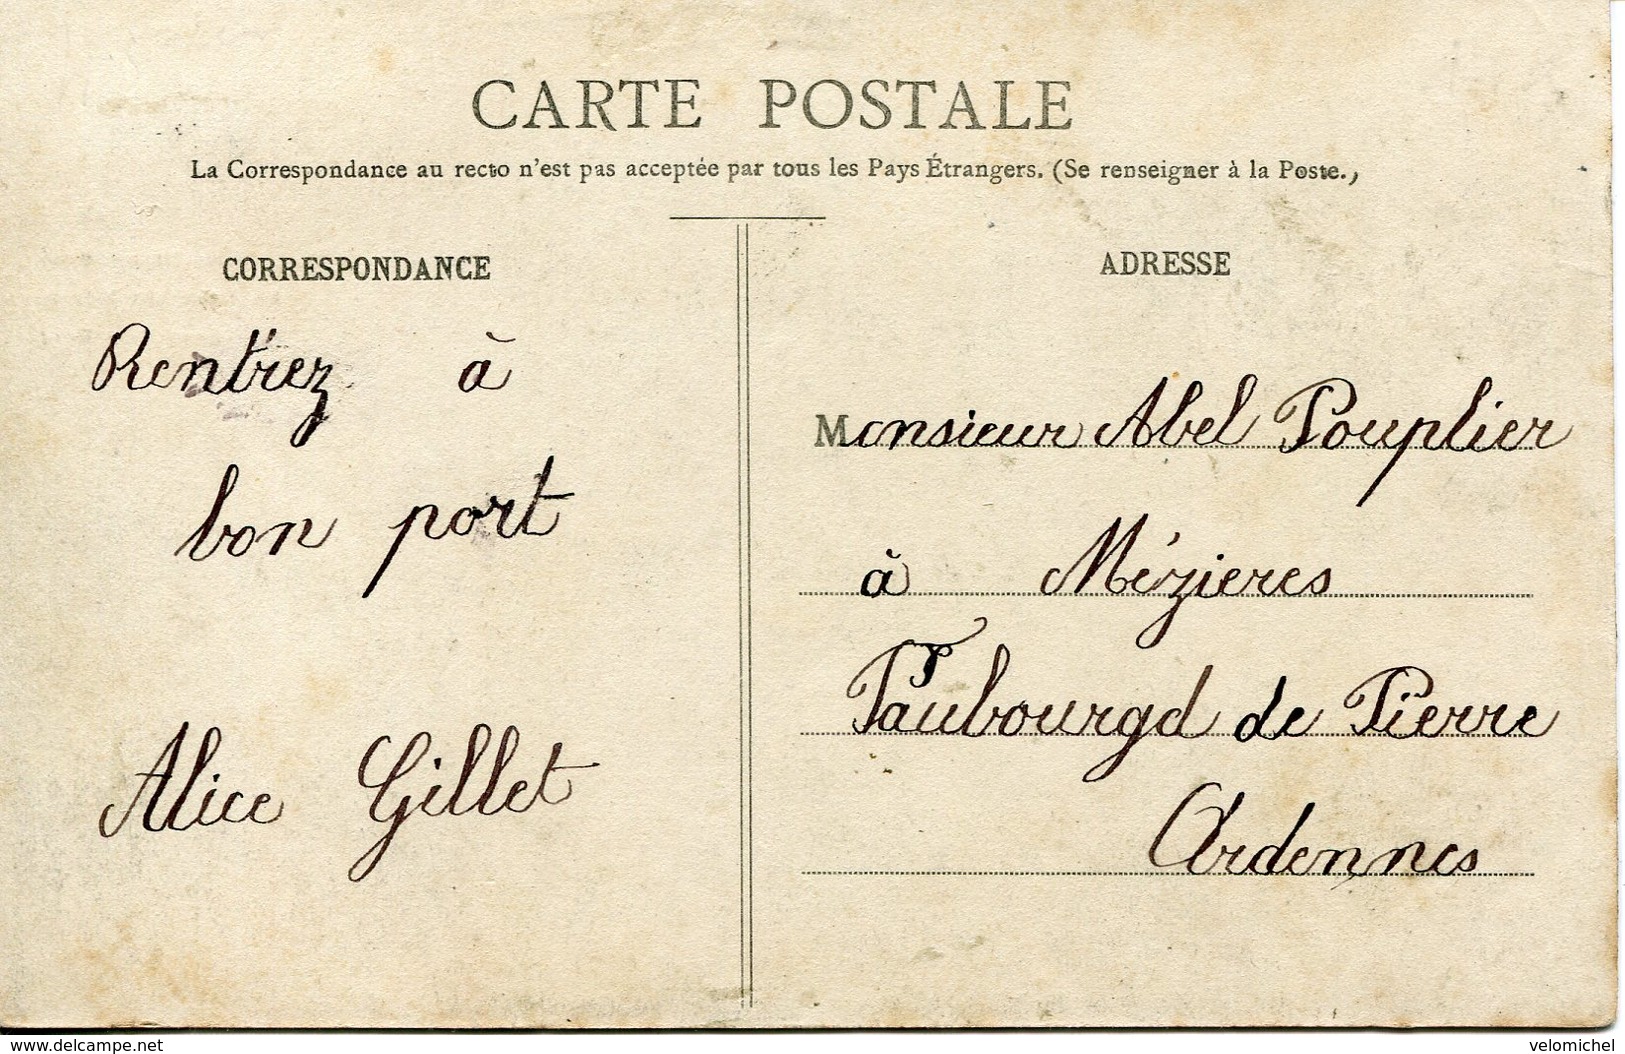 CARTE POSTALE
La Correspondance au recto n'est pas acceptée par tous les Pays Étrangers. (Se renseigner à la Poste.)
CORRESPONDANCE
Rentrez à
bon port
Alice Gillet
ADRESSE
Monsieur Abel Pouplier
à Mézieres
Faubourgd de Pierre
Ardennes
www.delcampe.net
velomichel